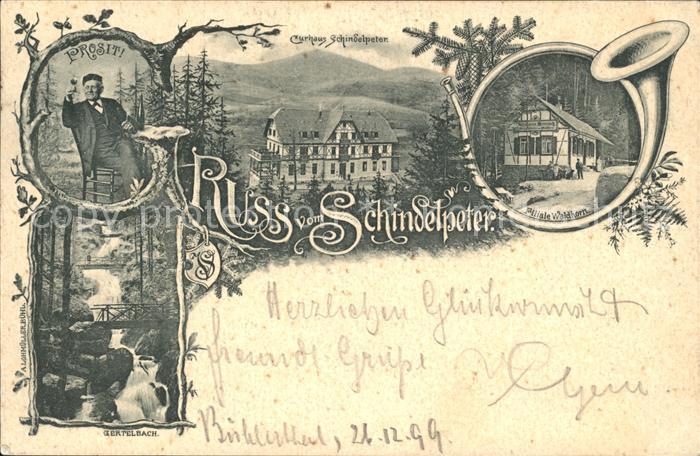 PROSIT!
Curhaus Schindelpeter.
Filiale Waldhorn.
Gruss vom Schindelpeter.
Herzlichen Glückwunsch
freundl Grüße
Bühlerthal, 26.12.99.
A. LOHMÜLLER, BÜHL.
GERTELBACH.